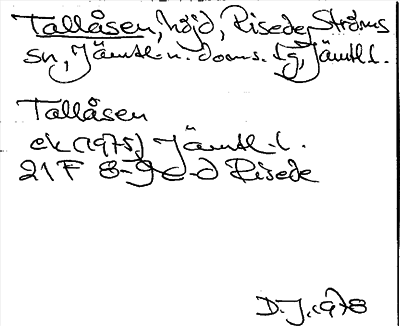 Tallåsen, höjd, Risede, Ströms
sn, Jämtl. n. doms. tg, Jämtl. l.
Tallåsen
ek (1975) Jämtl. l.
21 F 8-9 c-d Risede
D. J. 1978